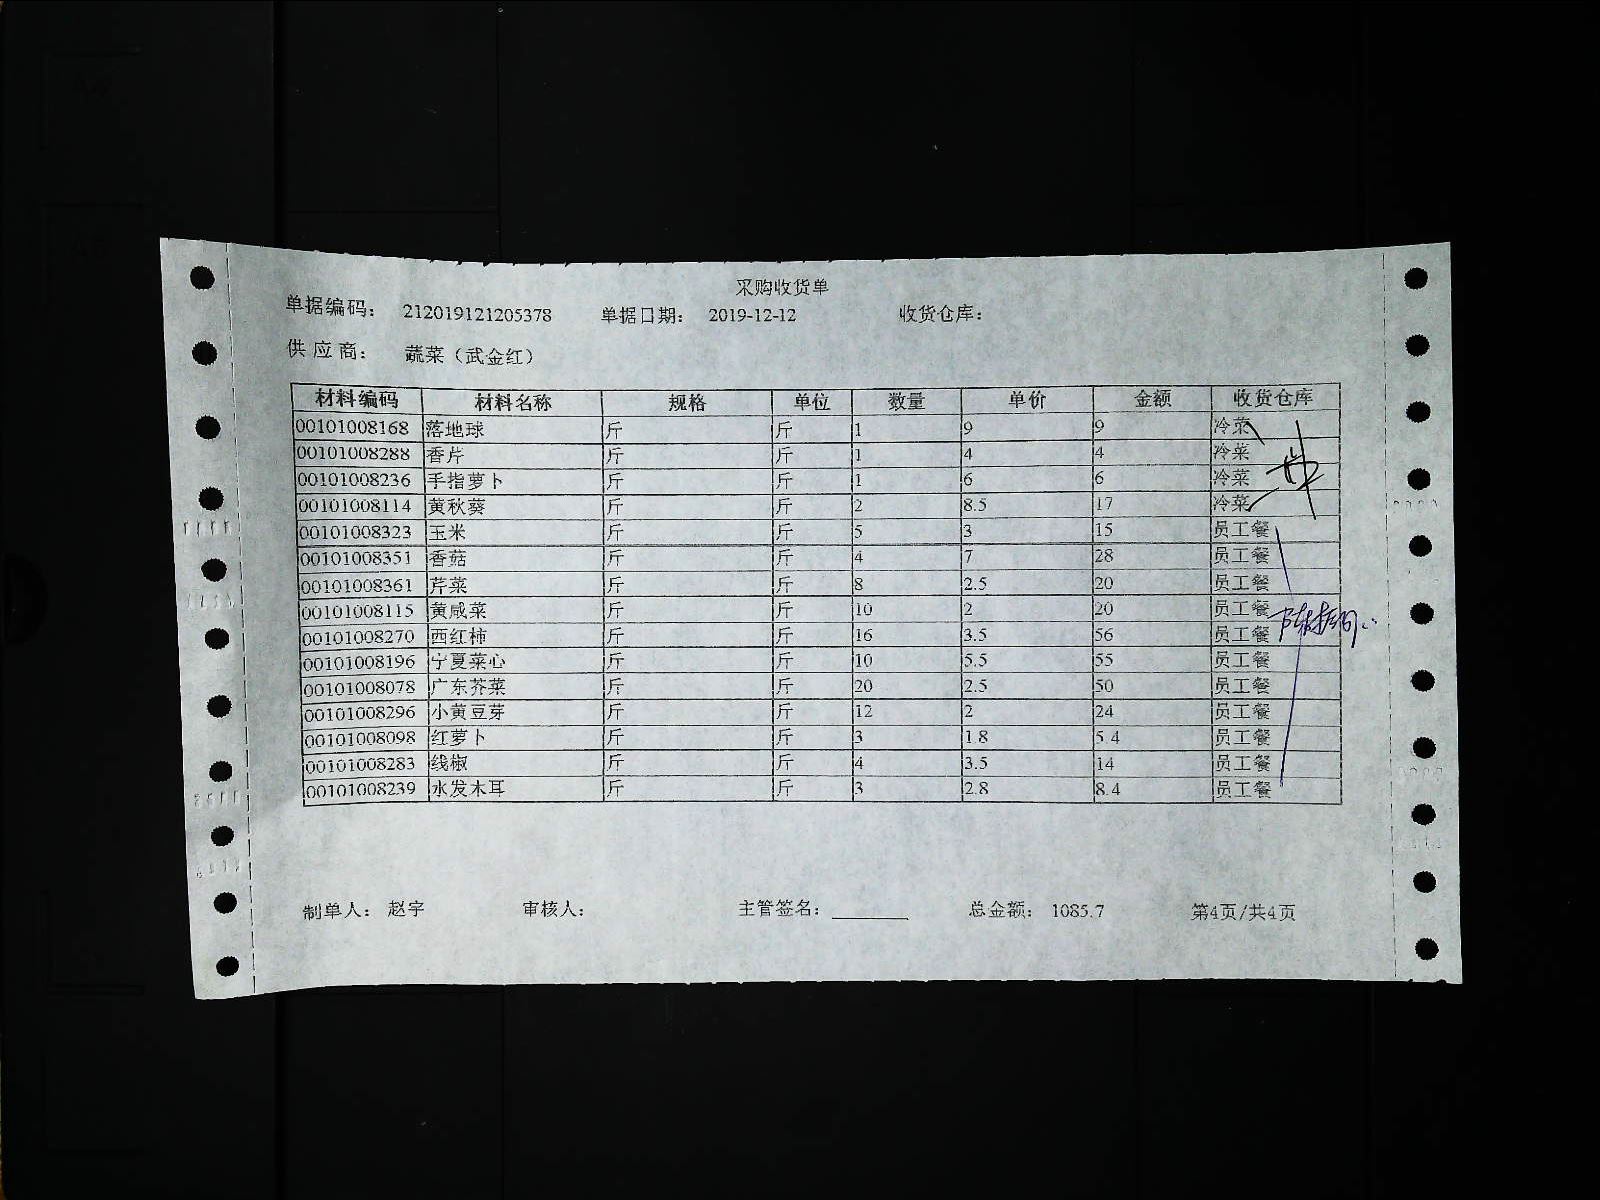 采购收货单
单据编码： 212019121205378 单据日期： 2019-12-12 收货仓库：
供应商： 蔬菜（武金红）
材料编码 材料名称 规格 单位 数量 单价 金额 收货仓库
00101008168 落地球 斤 斤 1 9 9 冷菜
00101008288 香芹 斤 斤 1 4 4 冷菜
00101008236 手指萝卜 斤 斤 1 6 6 冷菜
00101008114 黄秋葵 斤 斤 2 8.5 17 冷菜
00101008323 玉米 斤 斤 5 3 15 员工餐
00101008351 香菇 斤 斤 4 7 28 员工餐
00101008361 芹菜 斤 斤 8 2.5 20 员工餐
00101008115 黄咸菜 斤 斤 10 2 20 员工餐
00101008270 西红柿 斤 斤 16 3.5 56 员工餐
00101008196 宁夏菜心 斤 斤 10 5.5 55 员工餐
00101008078 广东芥菜 斤 斤 20 2.5 50 员工餐
00101008296 小黄豆芽 斤 斤 12 2 24 员工餐
00101008098 红萝卜 斤 斤 3 1.8 5.4 员工餐
00101008283 线椒 斤 斤 4 3.5 14 员工餐
00101008239 水发木耳 斤 斤 3 2.8 8.4 员工餐
制单人： 赵宇 审核人： 主管签名： 总金额： 1085.7 第4页/共4页